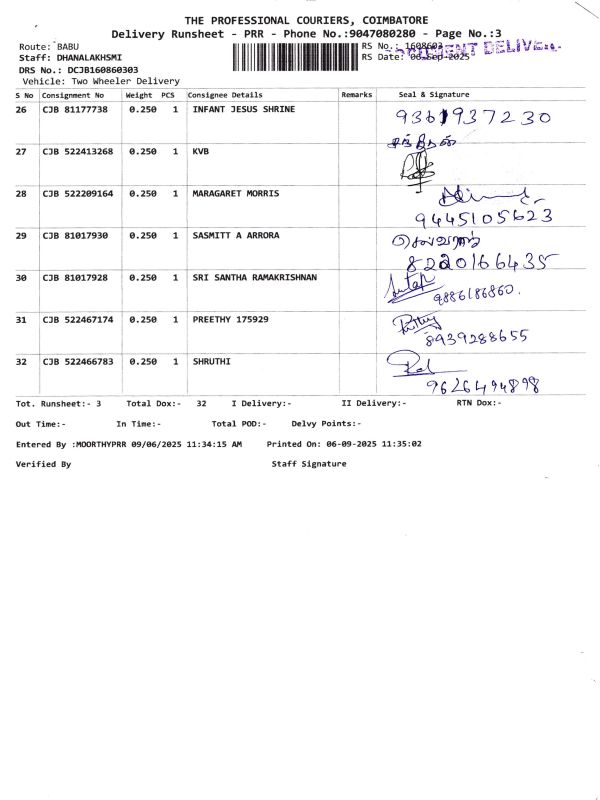 THE PROFESSIONAL COURIERS, COIMBATORE
Delivery Runsheet - PRR - Phone No.:9047080280 - Page No.:3
Route: BABU RS No.: 1608603
DELIVE
Staff: DHANALAKHSMI RS Date: 06-Sep-2025
DRS No.: DCJB160860303
Vehicle: Two Wheeler Delivery
S No Consignment No Weight PCS Consignee Details Remarks Seal & Signature
26 CJB 81177738 0.250 1 INFANT JESUS SHRINE 9361937230
27 CJB 522413268 0.250 1 KVB
28 CJB 522209164 0.250 1 MARAGARET MORRIS
9445105623
29 CJB 81017930 0.250 1 SASMITT A ARRORA செல்வராஜ்
8220166435
30 CJB 81017928 0.250 1 SRI SANTHA RAMAKRISHNAN
9886186860.
31 CJB 522467174 0.250 1 PREETHY 175929
8939288655
32 CJB 522466783 0.250 1 SHRUTHI
9626494898
Tot. Runsheet:- 3 Total Dox:- 32 I Delivery:- II Delivery:- RTN Dox:-
Out Time:- In Time:- Total POD:- Delvy Points:-
Entered By :MOORTHYPRR 09/06/2025 11:34:15 AM Printed On: 06-09-2025 11:35:02
Verified By Staff Signature